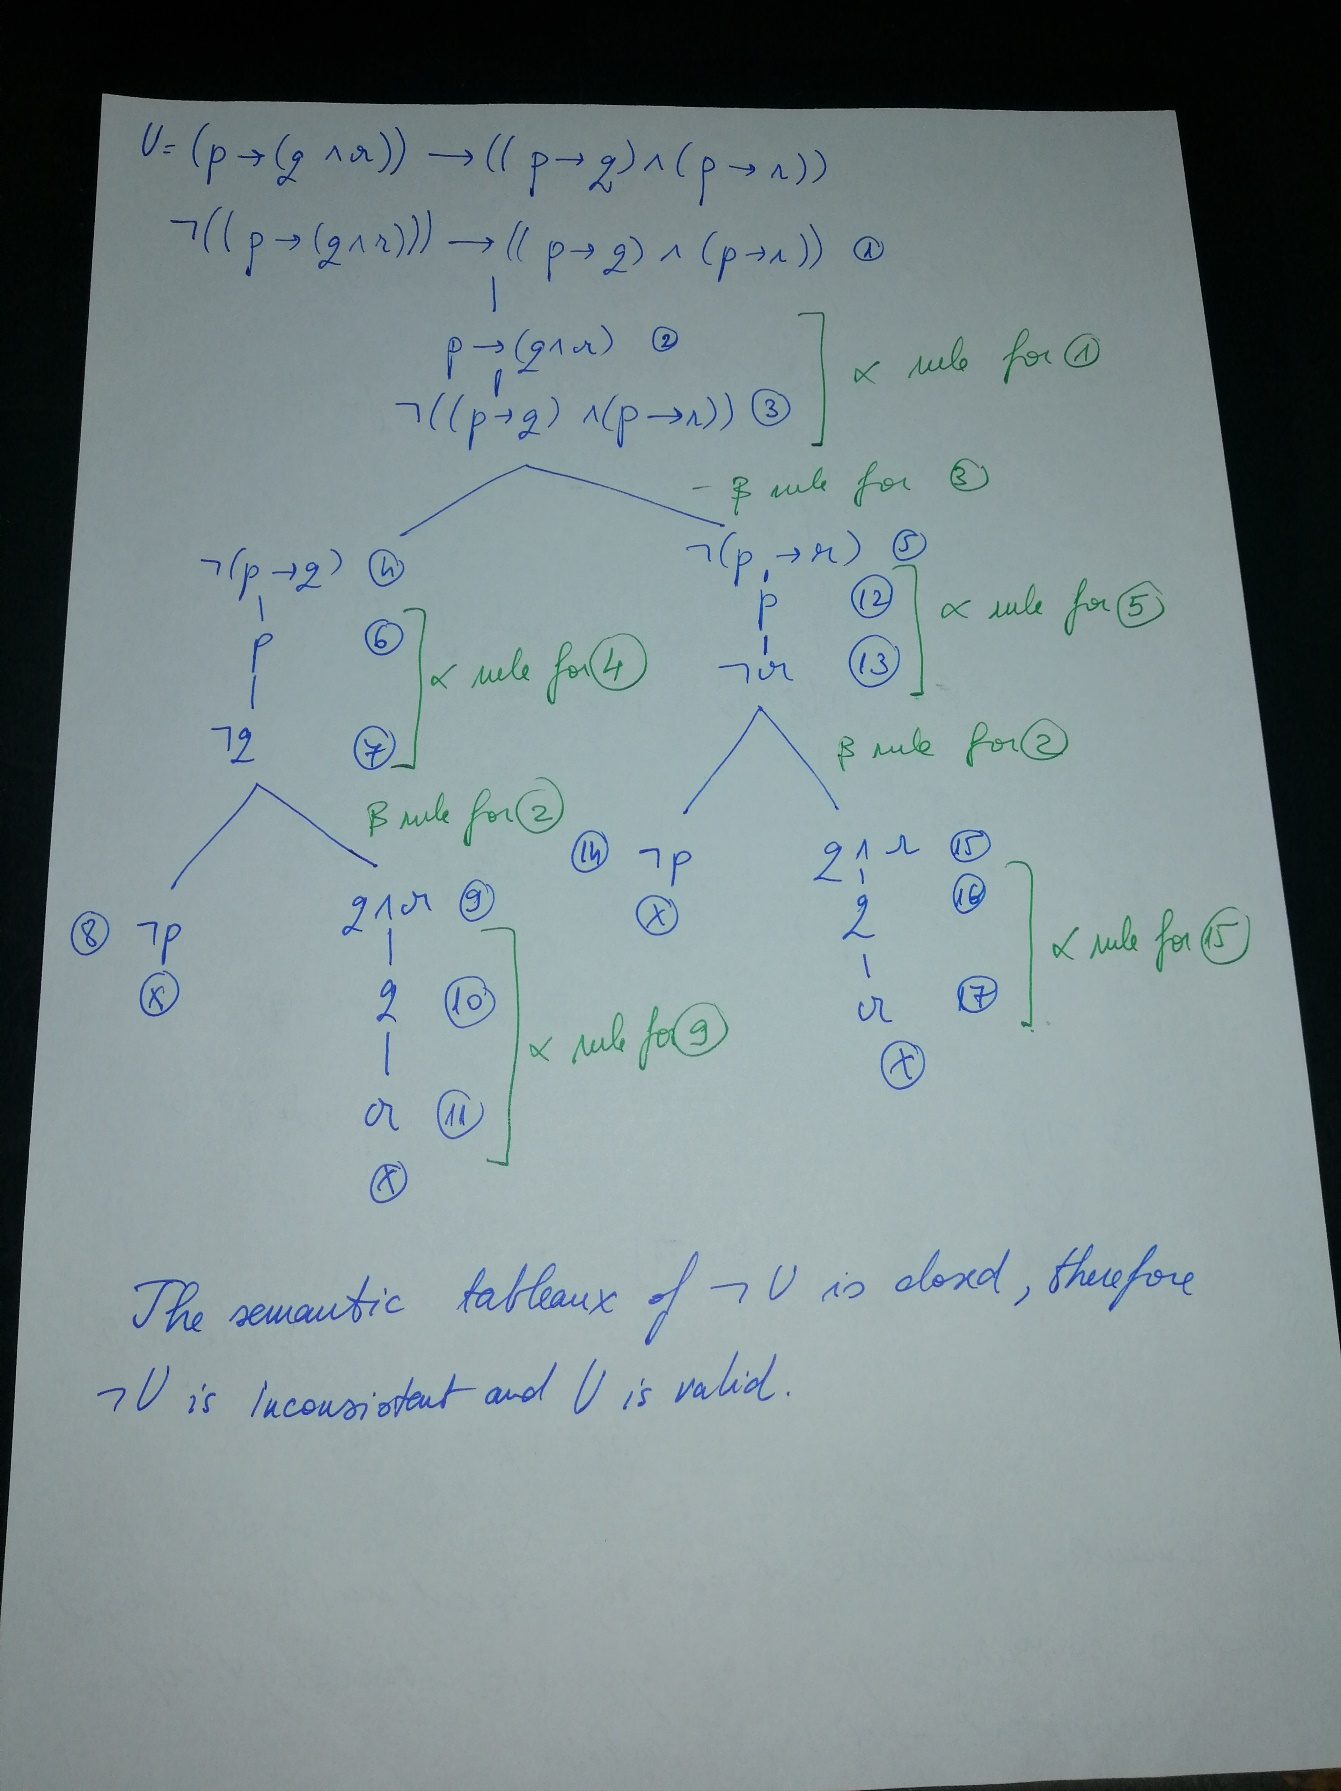 U = (p → (q ∧ r)) → ((p → q) ∧ (p → r))
¬((p → (q ∧ r))) → ((p → q) ∧ (p → r)) ①
p → (q ∧ r) ②
¬((p → q) ∧ (p → r)) ③
α rule for ①
- β rule for ③
¬(p → q) ④
¬(p → r) ⑤
p ⑥
¬q ⑦
α rule for ④
p ⑫
¬r ⑬
α rule for ⑤
β rule for ②
β rule for ②
⑧ ¬p
ⓧ
q ∧ r ⑨
q ⑩
r ⑪
ⓧ
α rule for ⑨
⑭ ¬p
ⓧ
q ∧ r ⑮
q ⑯
r ⑰
ⓧ
α rule for ⑮
The semantic tableaux of ¬U is closed, therefore
¬U is inconsistent and U is valid.